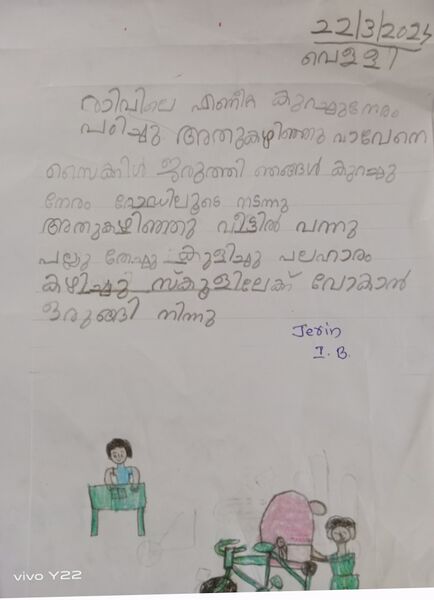 22/3/2024
വെള്ളി
രാവിലെ എണീറ്റ കുറച്ചുനേരം
പഠിച്ചു അതുകഴിഞ്ഞു വാവേനെ
സൈക്കിൾ ഇരുത്തി ഞങ്ങൾ കുറച്ചു
നേരം റോഡിലൂടെ നടന്നു
അതുകഴിഞ്ഞു വീട്ടിൽ വന്നു
പല്ലു തേച്ചു കുളിച്ചു പലഹാരം
കഴിച്ചു സ്കൂളിലേക് പോകാൻ
ഒരുങ്ങി നിന്നു
Jerin
I. B.
vivo Y22